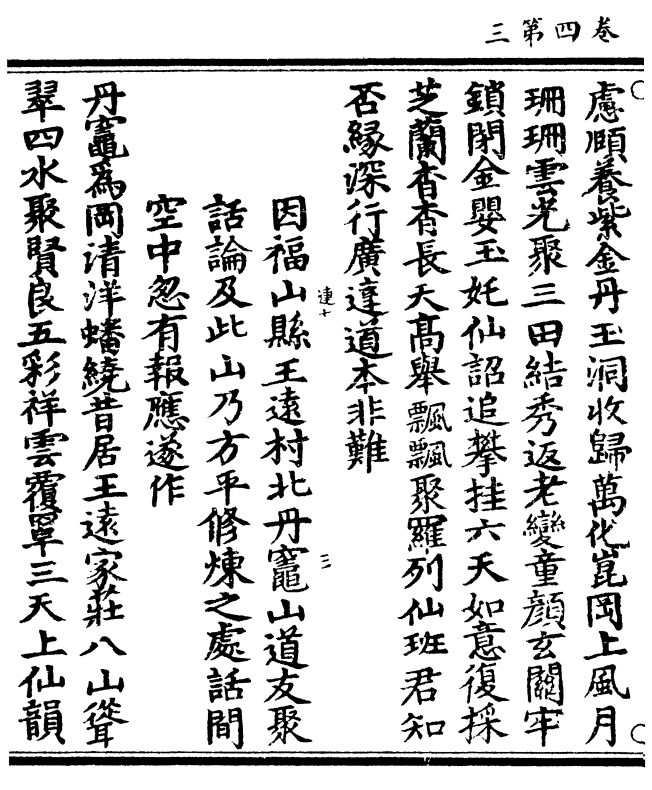 三第四卷
慮頤養紫金丹玉洞收歸萬化崑岡上風月
珊珊雲光聚三田結秀返老變童顏玄關牢
鎖閉金嬰玉姹仙詔追攀挂六天如意復採
芝蘭杳杳長天高舉飄飄聚羅列仙班君知
否緣深行廣達道本非難
連十
因福山縣王遠村北丹竈山道友聚
三
話論及此山乃方平修煉之處話間
空中忽有報應遂作
丹竈為岡清洋蟠繞昔居王遠家莊八山聳
翠四水聚賢良五彩祥雲覆罩三天上仙韻